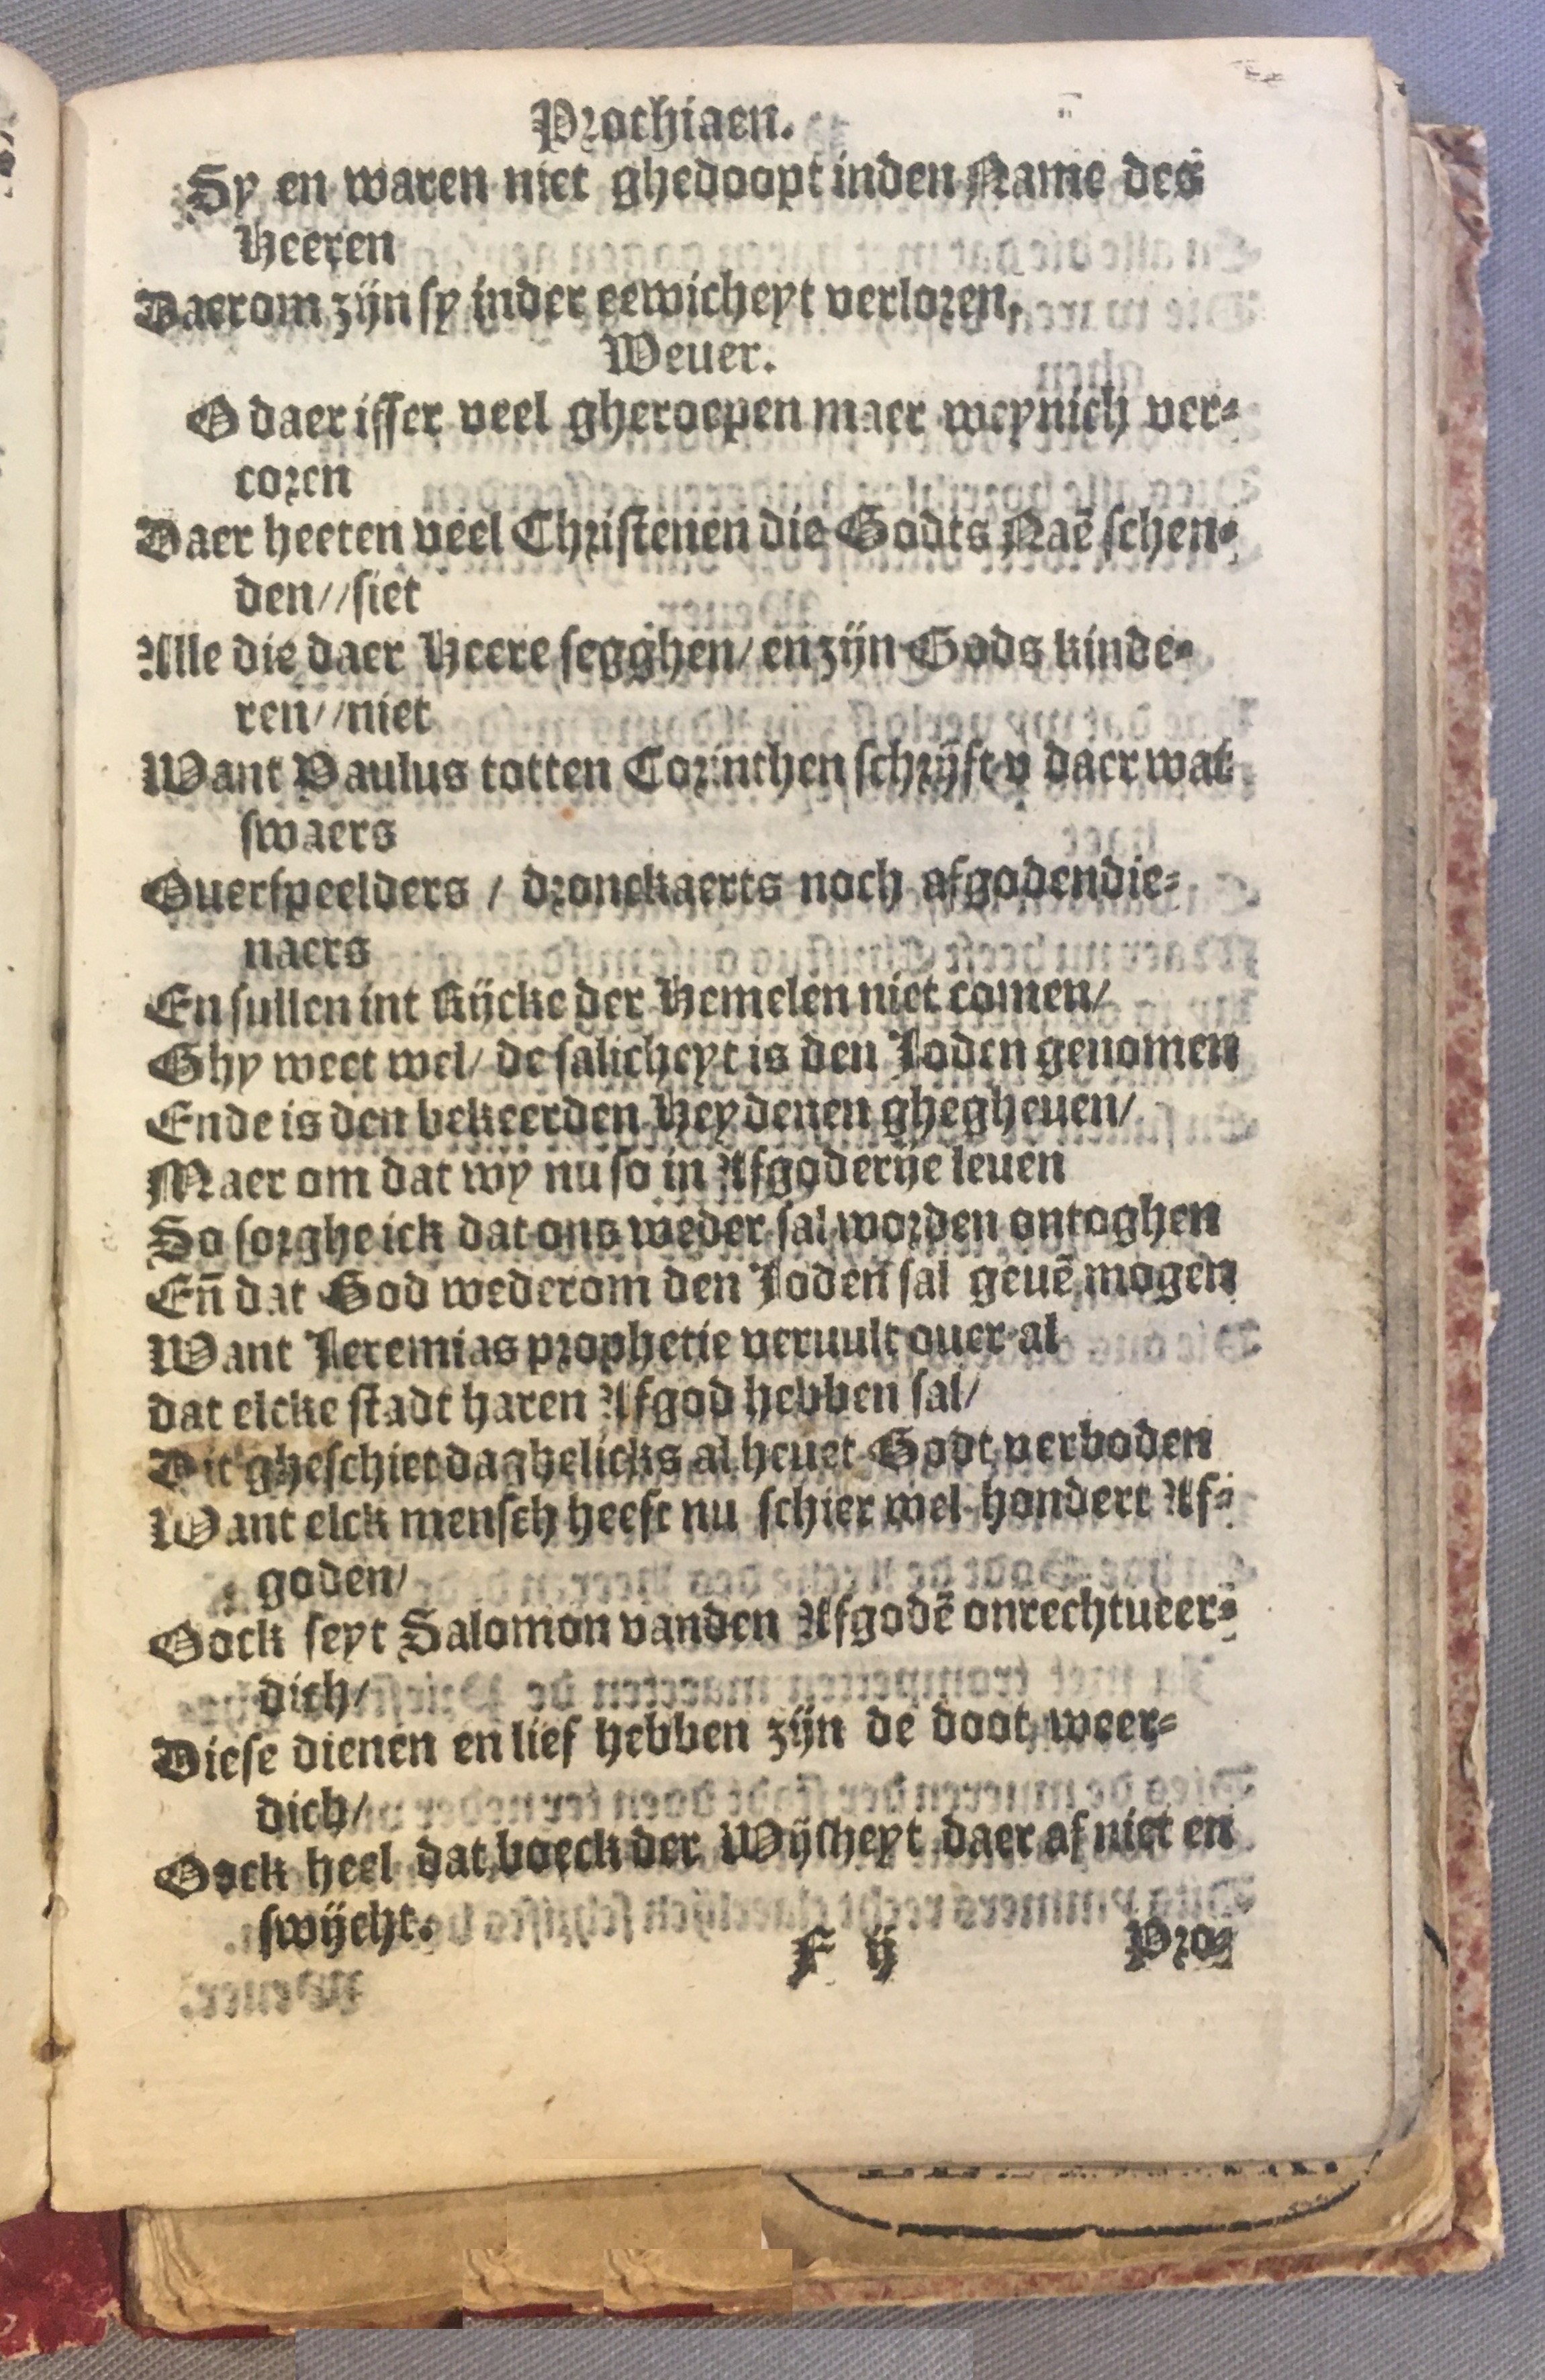 Prochiaen.
Sy en waren niet ghedoopt inden Name des
Heeren
Daerom zijn sy inder eewicheyt verloren.
Weuer.
O daer isser veel gheroepen maer weynich ver-
coren
Daer heeten veel Christenen die Godts Naē schen-
den//siet
Alle die daer Heere segghen/ en zijn Gods kinde-
ren//niet
Want Paulus totten Corinthen schrijft v daer wat
swaers
Ouerspeelders / dronckaerts noch afgodendie-
naers
En sullen int Rijcke der Hemelen niet comen/
Ghy weet wel/ de salicheyt is den Joden genomen
Ende is den bekeerden Heydenen ghegheuen/
Maer om dat wy nu so in Afgoderije leuen
So sorghe ick dat ons weder sal worden ontoghen
Eñ dat God wederom den Joden sal geuē mogen
Want Jeremias prophetie veruult ouer al
dat elcke stadt haren Afgod hebben sal/
Dit gheschiet daghelicks al heuet Godt verboden
Want elck mensch heeft nu schier wel hondert Af-
goden/
Oock seyt Salomon vanden Afgodē onrechtueer-
dich/
Diese dienen en lief hebben zijn de doot weer-
dich/
Oock heel dat boeck der Wijsheyt daer af niet en
swijcht.
F ij Pro-